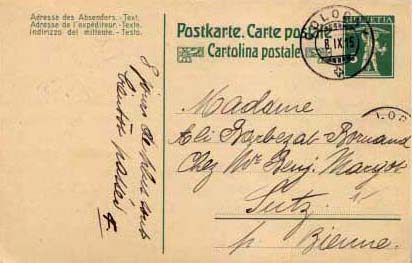 Adresse des Absenders. - Text.
Adresse de l'expéditeur. - Texte.
Indirizzo del mittente. - Testo.
Postkarte. Carte postale
Cartolina postale
HELVETIA
8.IX.15
8 jours de plus sont
bientôt passés
Madame
Ali Barbezat-Bornand
Chez Mr Benj. Margot
Sutz
pr Bienne.